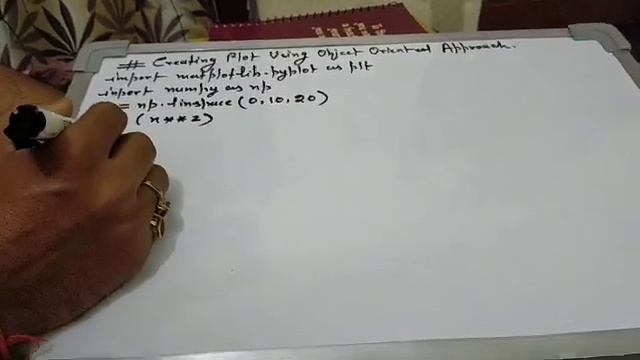 # Creating Plot Using Object Oriented Approach.
import matplotlib.pyplot as plt
import numpy as np
= np.linspace(0,10,20)
(x**2)